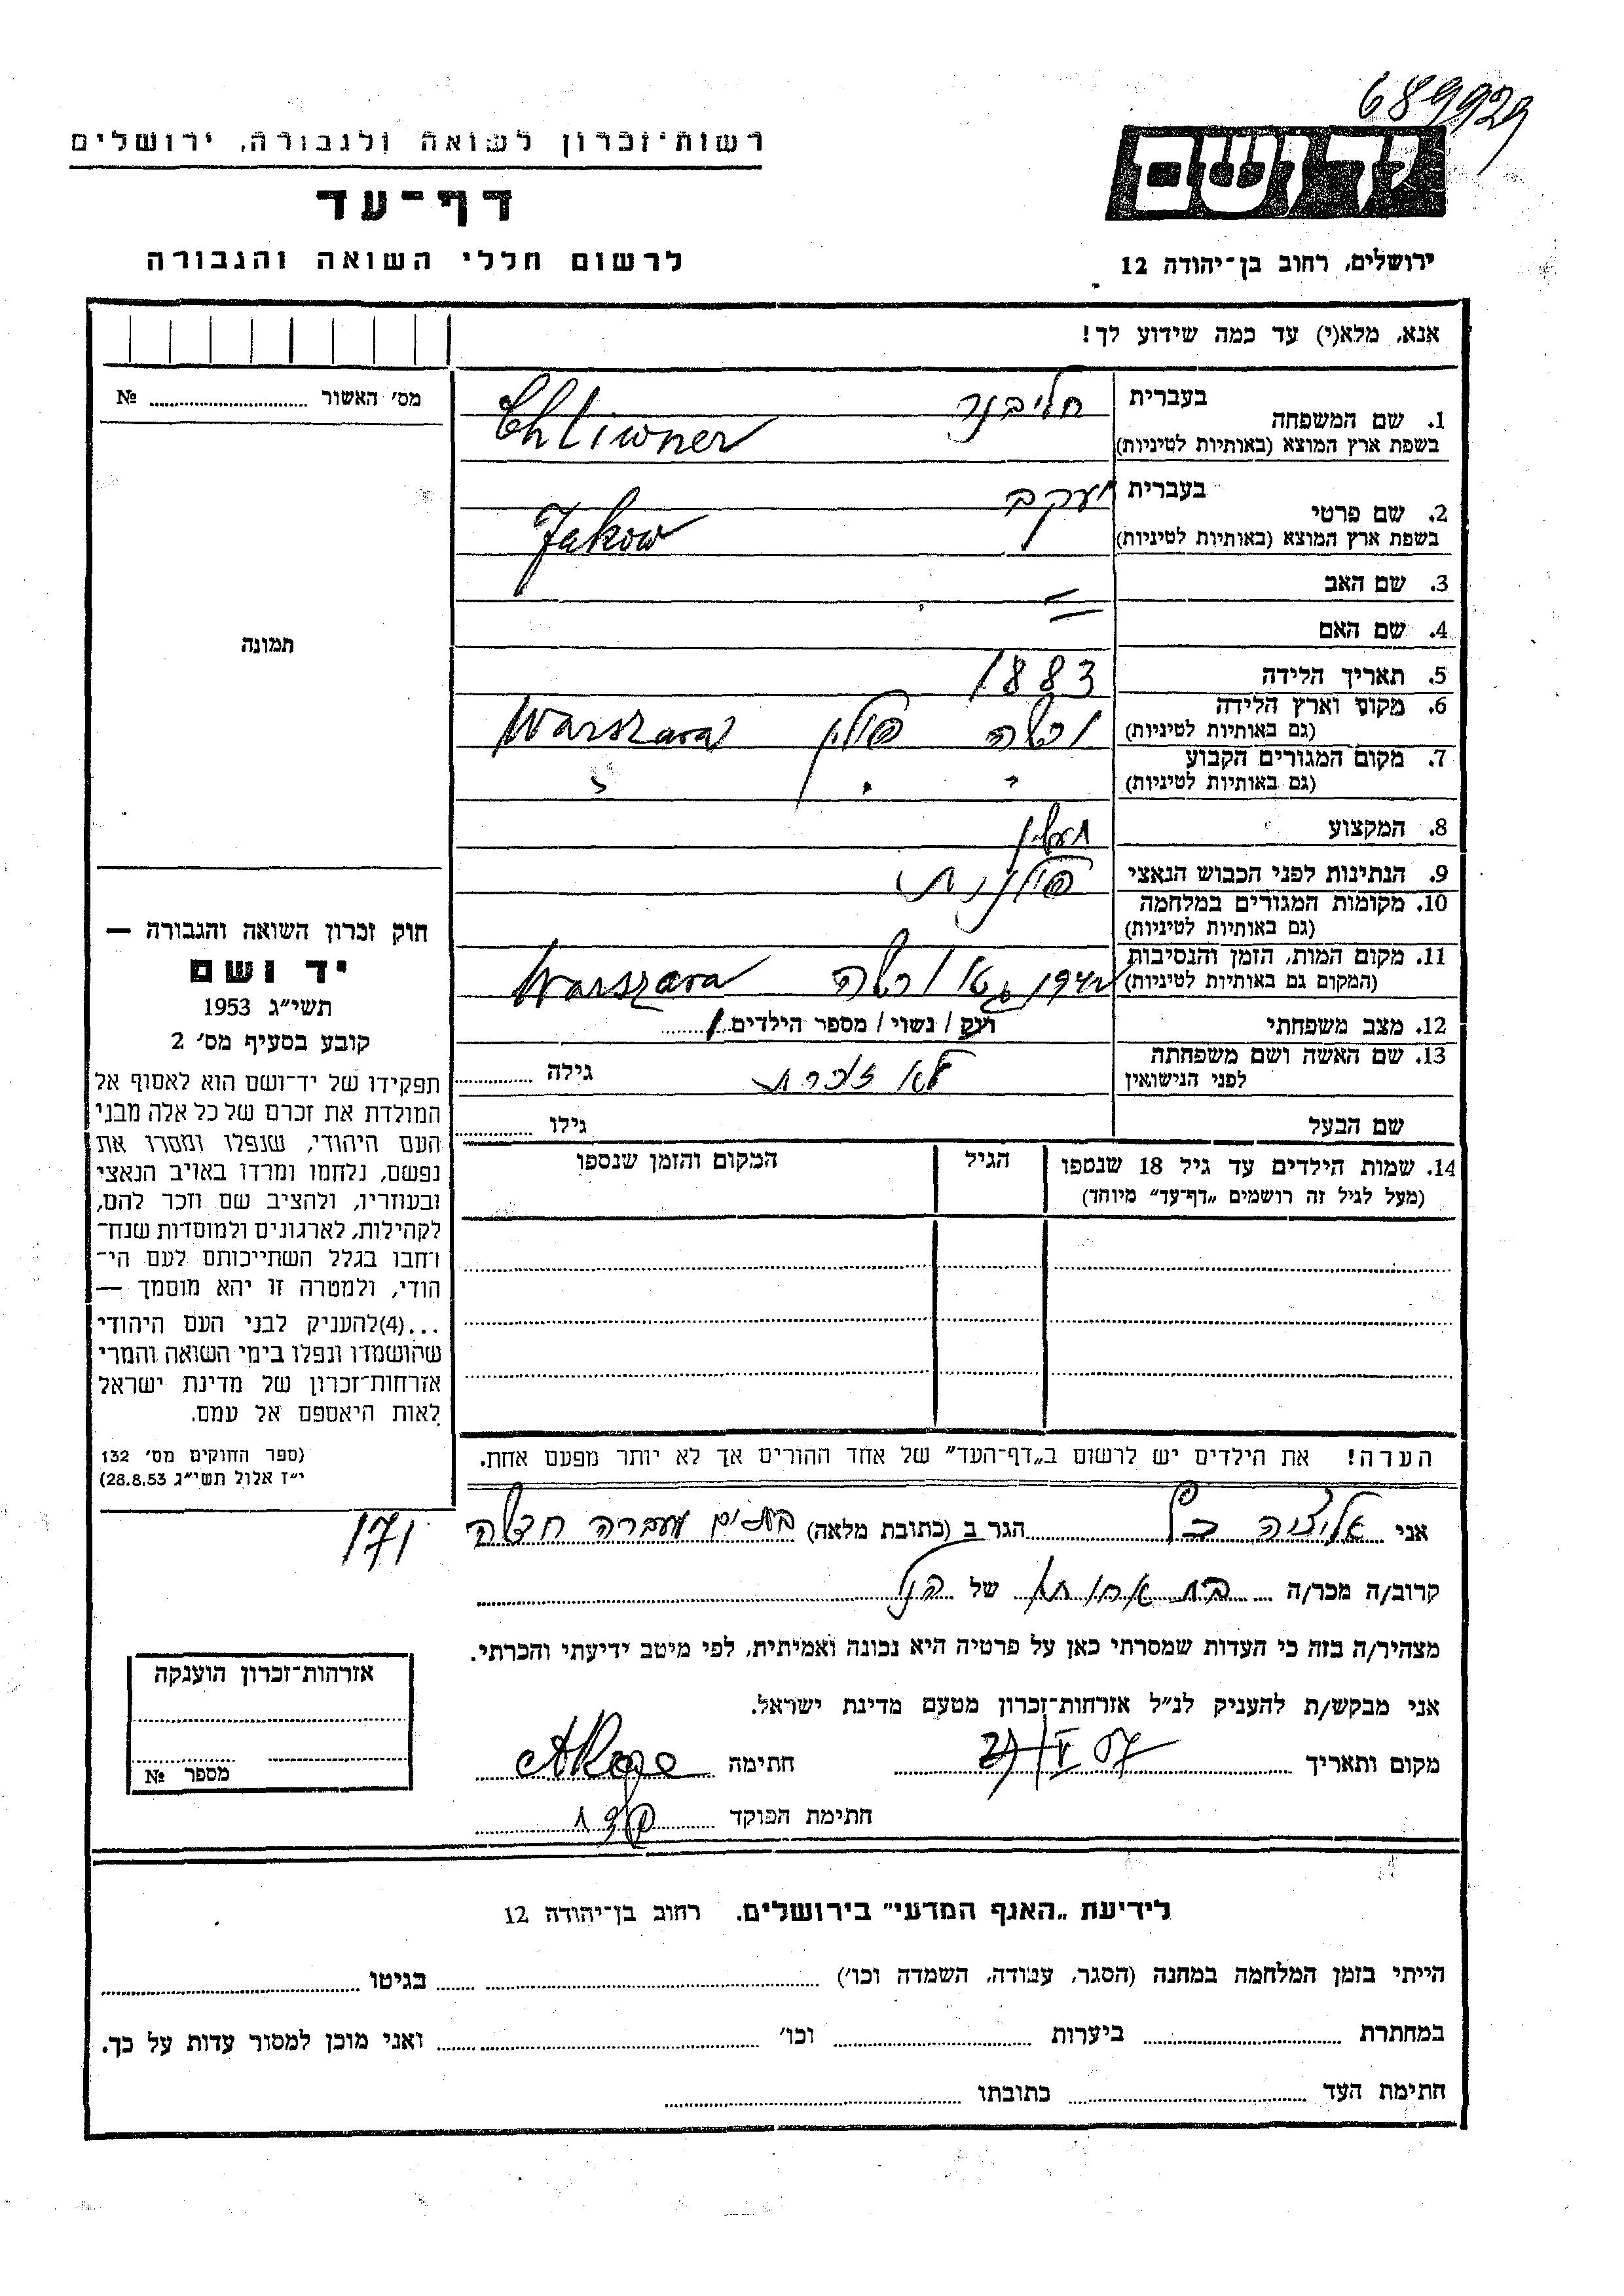 689929
רשות־זכרון לשואה ולגבורה, ירושלים
ידושם
דף־עד
לרשום חללי השואה והגבורה
ירושלים, רחוב בן־יהודה 12
אנא, מלא(י) עד כמה שידוע לך!
מס׳ האשור № ........
1. שם המשפחה בעברית חליבנר
בשפת ארץ המוצא (באותיות לטיניות) Chliwner
2. שם פרטי בעברית יעקב
בשפת ארץ המוצא (באותיות לטיניות) Jakow
3. שם האב
4. שם האם
5. תאריך הלידה 1883
6. מקום וארץ הלידה (גם באותיות לטיניות) ורשה פולין Warszawa
7. מקום המגורים הקבוע (גם באותיות לטיניות) " " "
8. המקצוע
9. הנתינות לפני הכבוש הנאצי פולנית
10. מקומות המגורים במלחמה (גם באותיות לטיניות)
11. מקום המות, הזמן והנסיבות (המקום גם באותיות לטיניות) גטו ורשה Warszawa
12. מצב משפחתי רוק / נשוי / מספר הילדים 1
13. שם האשה ושם משפחתה לפני הנישואין לא זוכרת גילה ........
שם הבעל גילו ........
14. שמות הילדים עד גיל 18 שנספו (מעל לגיל זה רושמים „דף־עד״ מיוחד) הגיל המקום והזמן שנספו
הערה! את הילדים יש לרשום ב„דף־העד״ של אחד ההורים אך לא יותר מפעם אחת.
תמונה
חוק זכרון השואה והגבורה —
יד ושם
תשי״ג 1953
קובע בסעיף מס׳ 2
תפקידו של יד־ושם הוא לאסוף אל
המולדת את זכרם של כל אלה מבני
העם היהודי, שנפלו ומסרו את
נפשם, נלחמו ומרדו באויב הנאצי
ובעוזריו, ולהציב שם וזכר להם,
לקהילות, לארגונים ולמוסדות שנח־
רחבו בגלל השתייכותם לעם הי־
הודי, ולמטרה זו יהא מוסמך —
...(4)להעניק לבני העם היהודי
שהושמדו ונפלו בימי השואה והמרי
אזרחות־זכרון של מדינת ישראל
לאות היאספם אל עמם.
(ספר החוקים מס׳ 132
י״ז אלול תשי״ג 28.8.53)
אני הגר ב (כתובת מלאה) בת ים מעברה חדשה 171
קרוב/ה מכר/ה בת אחותו של הנ״ל
מצהיר/ה בזה כי העדות שמסרתי כאן על פרטיה היא נכונה ואמיתית, לפי מיטב ידיעתי והכרתי.
אני מבקש/ת להעניק לנ״ל אזרחות־זכרון מטעם מדינת ישראל.
מקום ותאריך חתימה
חתימת הפוקד
אזרחות־זכרון הוענקה
מספר №
לידיעת „האגף המדעי״ בירושלים, רחוב בן־יהודה 12
הייתי בזמן המלחמה במחנה (הסגר, עבודה, השמדה וכו׳) ........ בגיטו ........
במחתרת ........ ביערות ........ וכו׳ ........ ואני מוכן למסור עדות על כך.
חתימת העד ........ כתובתו ........